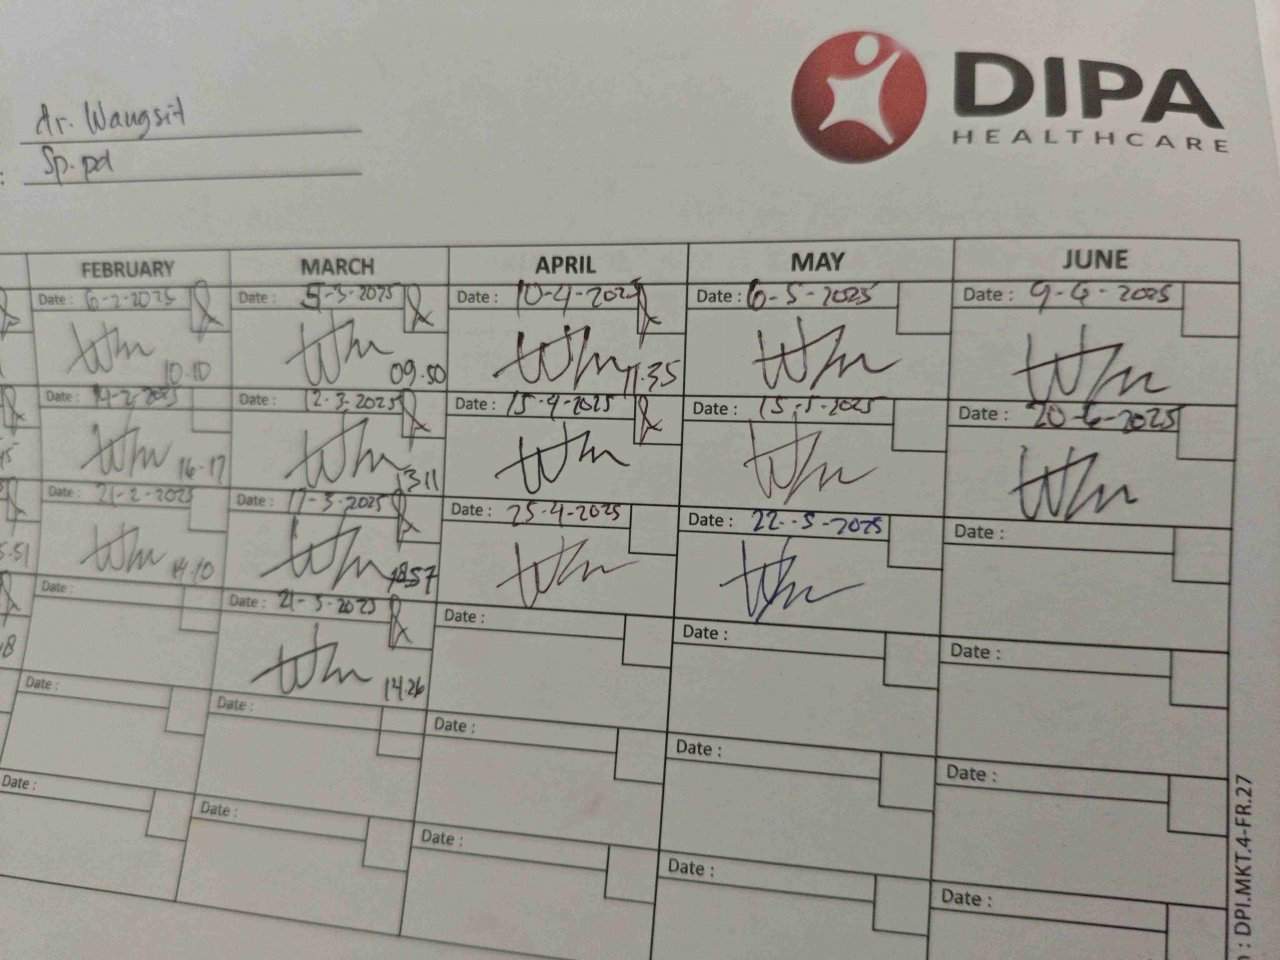 DIPA
HEALTHCARE
dr. Wangsit
: Sp.pd
FEBRUARY MARCH APRIL MAY JUNE
Date : 6-2-2025 Date : 5-3-2025 Date : 10-4-2025 Date : 6-5-2025 Date : 9-6-2025
10.10 09.50 11.35
Date : 14-2-2025 Date : 12-3-2025 Date : 15-4-2025 Date : 15-5-2025 Date : 20-6-2025
16.17 13.11
Date : 21-2-2025 Date : 17-3-2025 Date : 25-4-2025 Date : 22-5-2025 Date :
5.51 14.10 18.57
Date : Date : 21-3-2025 Date : Date : Date :
14.26
Date : Date : Date : Date : Date :
Date : Date : Date : Date : Date :
: DPI.MKT.4-FR.27